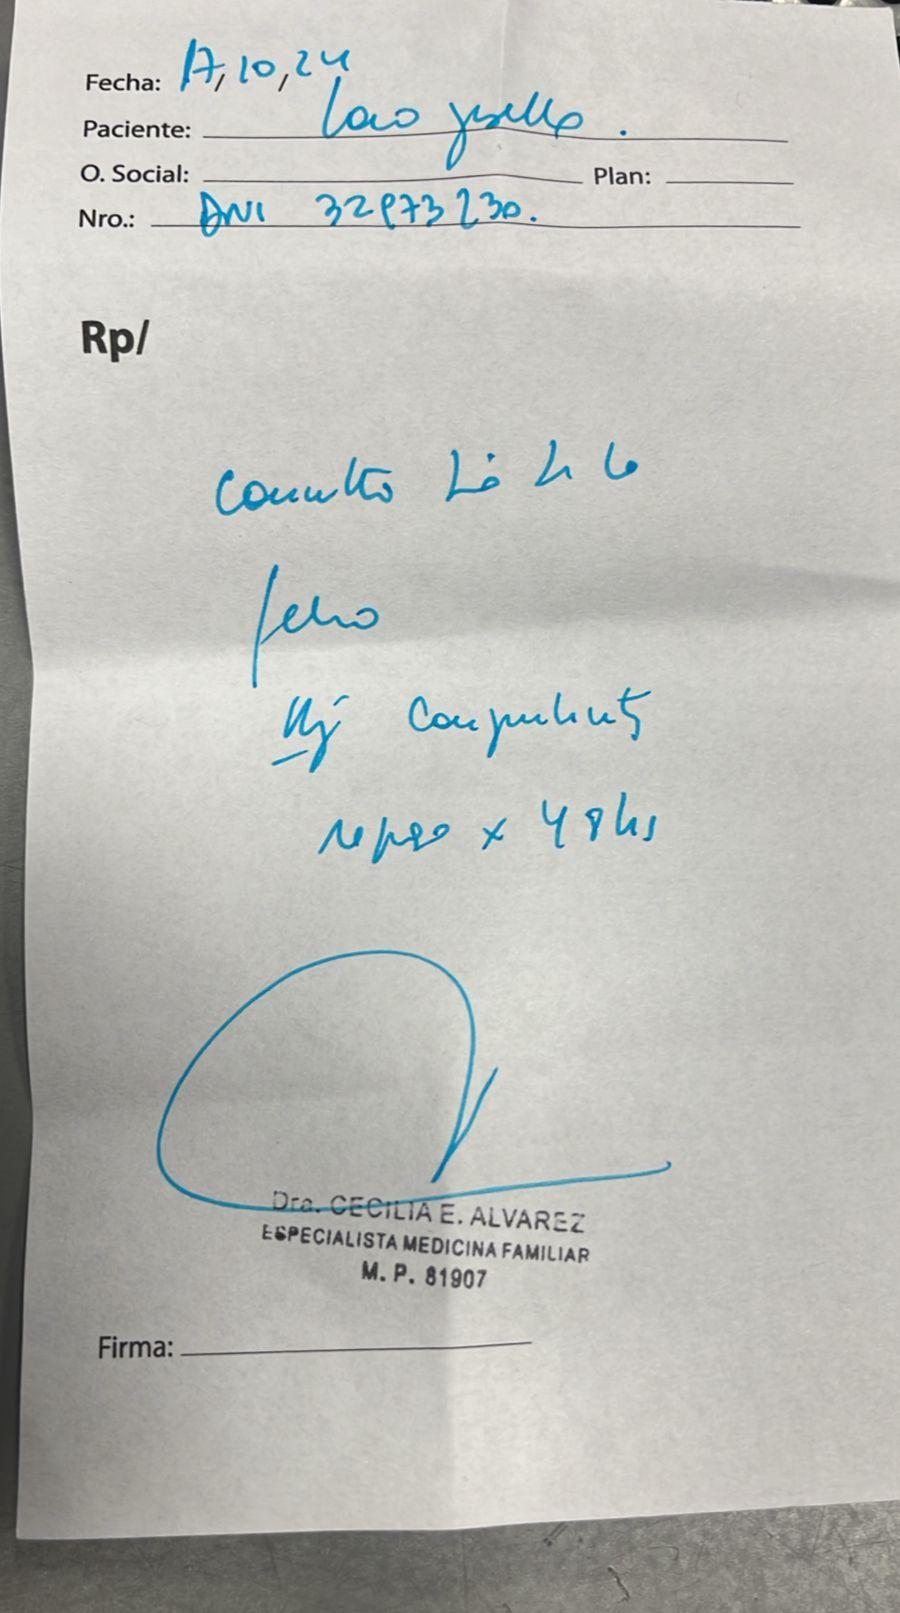 Fecha: 17,10,24
Paciente:
O. Social: Plan:
Nro.: DNI 32973230.
Rp/
fecha
conjuntivitis
reposo x 48hs
Dra. CECILIA E. ALVAREZ
ESPECIALISTA MEDICINA FAMILIAR
M. P. 81907
Firma: